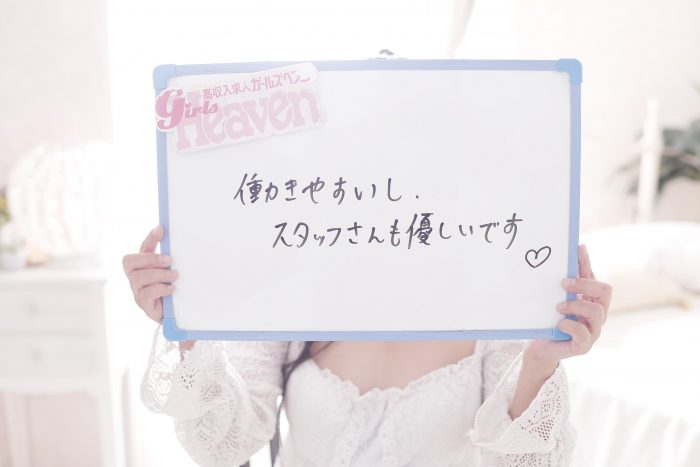 高収入求人ガールズヘブン
Girls
Heaven
働きやすいし、
スタッフさんも優しいです♡